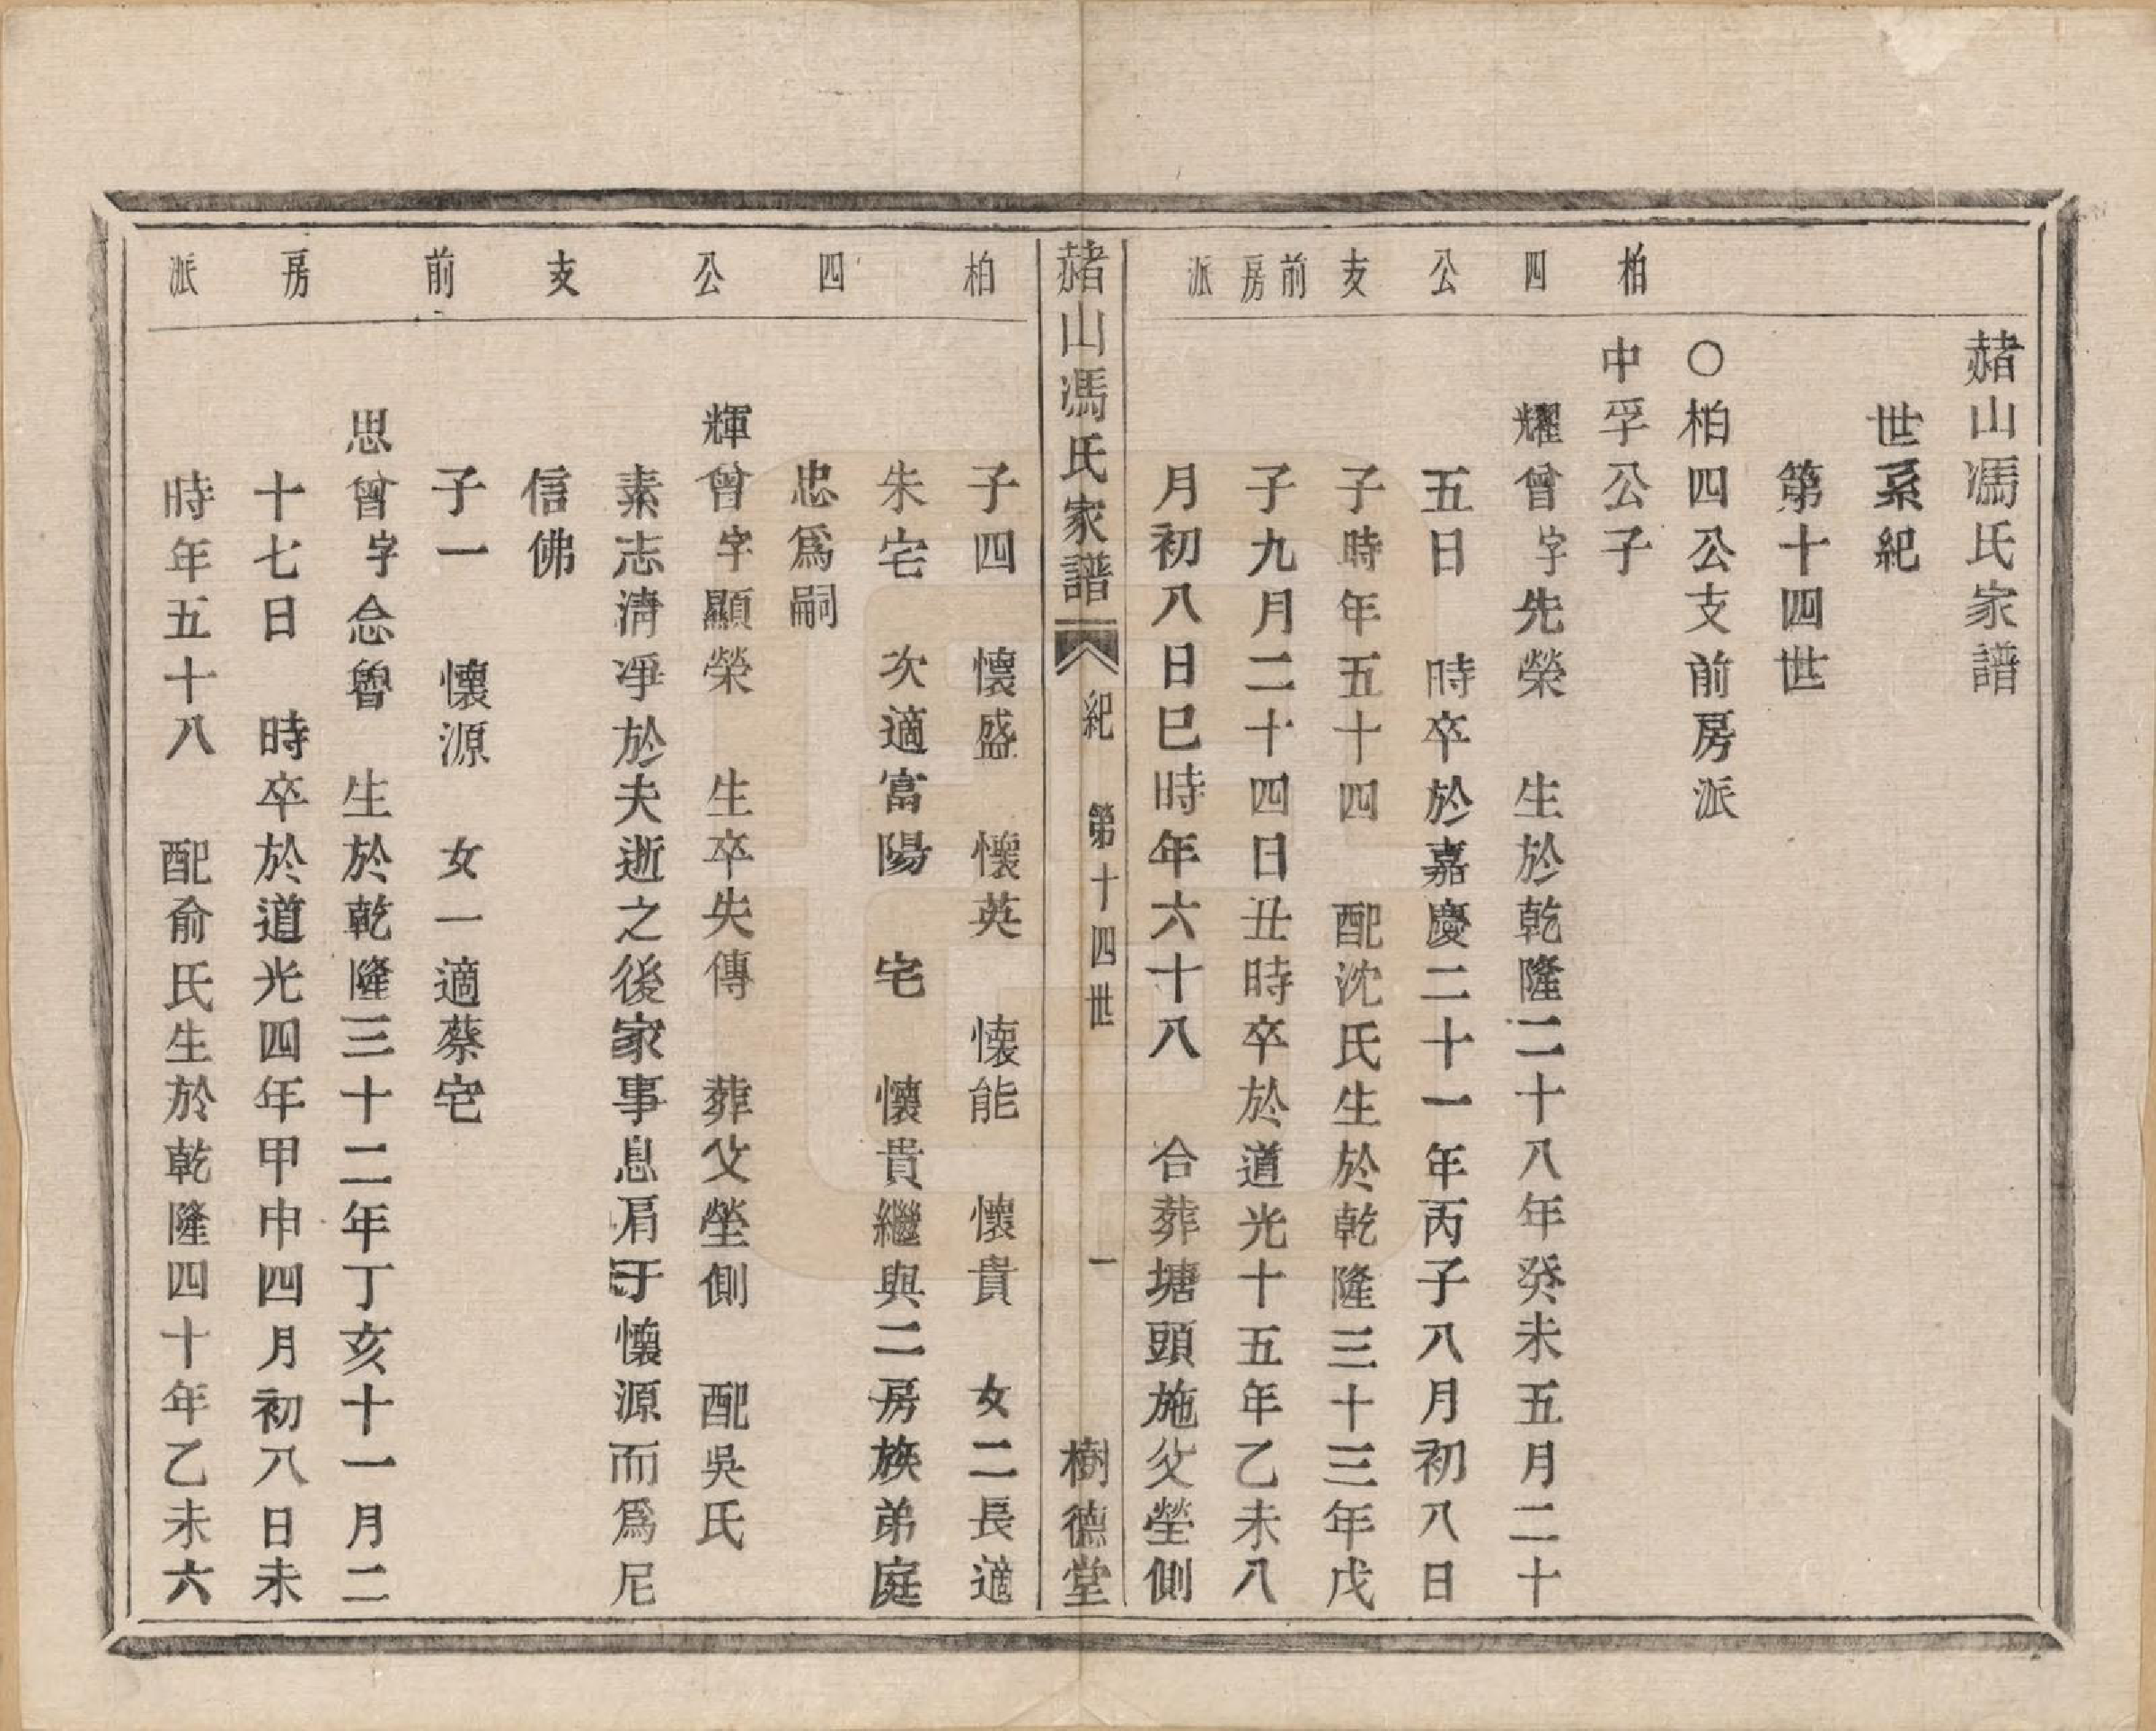 柏四公支前房派
赭山馮氏家譜
世系紀
第十四世
○柏四公支前房派
中孚公子
耀曾字先榮　生於乾隆二十八年癸未五月二十
五日　時卒於嘉慶二十一年丙子八月初八日
子時年五十四　配沈氏生於乾隆三十三年戊
子九月二十四日丑時卒於道光十五年乙未八
月初八日巳時年六十八　合葬塘頭施父塋側
赭山馮氏家譜　紀　第十四世　一　樹德堂
柏四公支前房派
子四　懷盛　懷英　懷能　懷貴　女二長適
朱宅　次適富陽　宅　懷貴繼與二房族弟庭
忠爲嗣
輝曾字顯榮　生卒失傳　葬父塋側　配吳氏
素志淸凈於夫逝之後家事息肩于懷源而爲尼
信佛
子一　懷源　女一適蔡宅
思曾字念魯　生於乾隆三十二年丁亥十一月二
十七日　時卒於道光四年甲申四月初八日未
時年五十八　配俞氏生於乾隆四十年乙未六